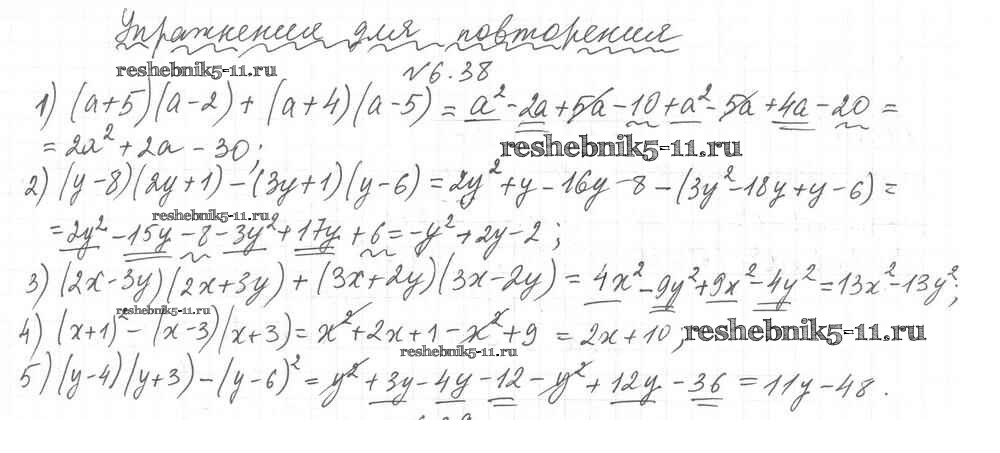 Упражнения для повторения
reshebnik5-11.ru
№6.38
1) (a+5)(a-2) + (a+4)(a-5) = a² - 2a + 5a - 10 + a² - 5a + 4a - 20 =
= 2a² + 2a - 30;
reshebnik5-11.ru
2) (y-8)(2y+1) - (3y+1)(y-6) = 2y² + y - 16y - 8 - (3y² - 18y + y - 6) =
reshebnik5-11.ru
= 2y² - 15y - 8 - 3y² + 17y + 6 = -y² + 2y - 2;
3) (2x-3y)(2x+3y) + (3x+2y)(3x-2y) = 4x² - 9y² + 9x² - 4y² = 13x² - 13y²;
reshebnik5-11.ru
4) (x+1)² - (x-3)(x+3) = x² + 2x + 1 - x² + 9 = 2x + 10;
reshebnik5-11.ru
reshebnik5-11.ru
5) (y-4)(y+3) - (y-6)² = y² + 3y - 4y - 12 - y² + 12y - 36 = 11y - 48.